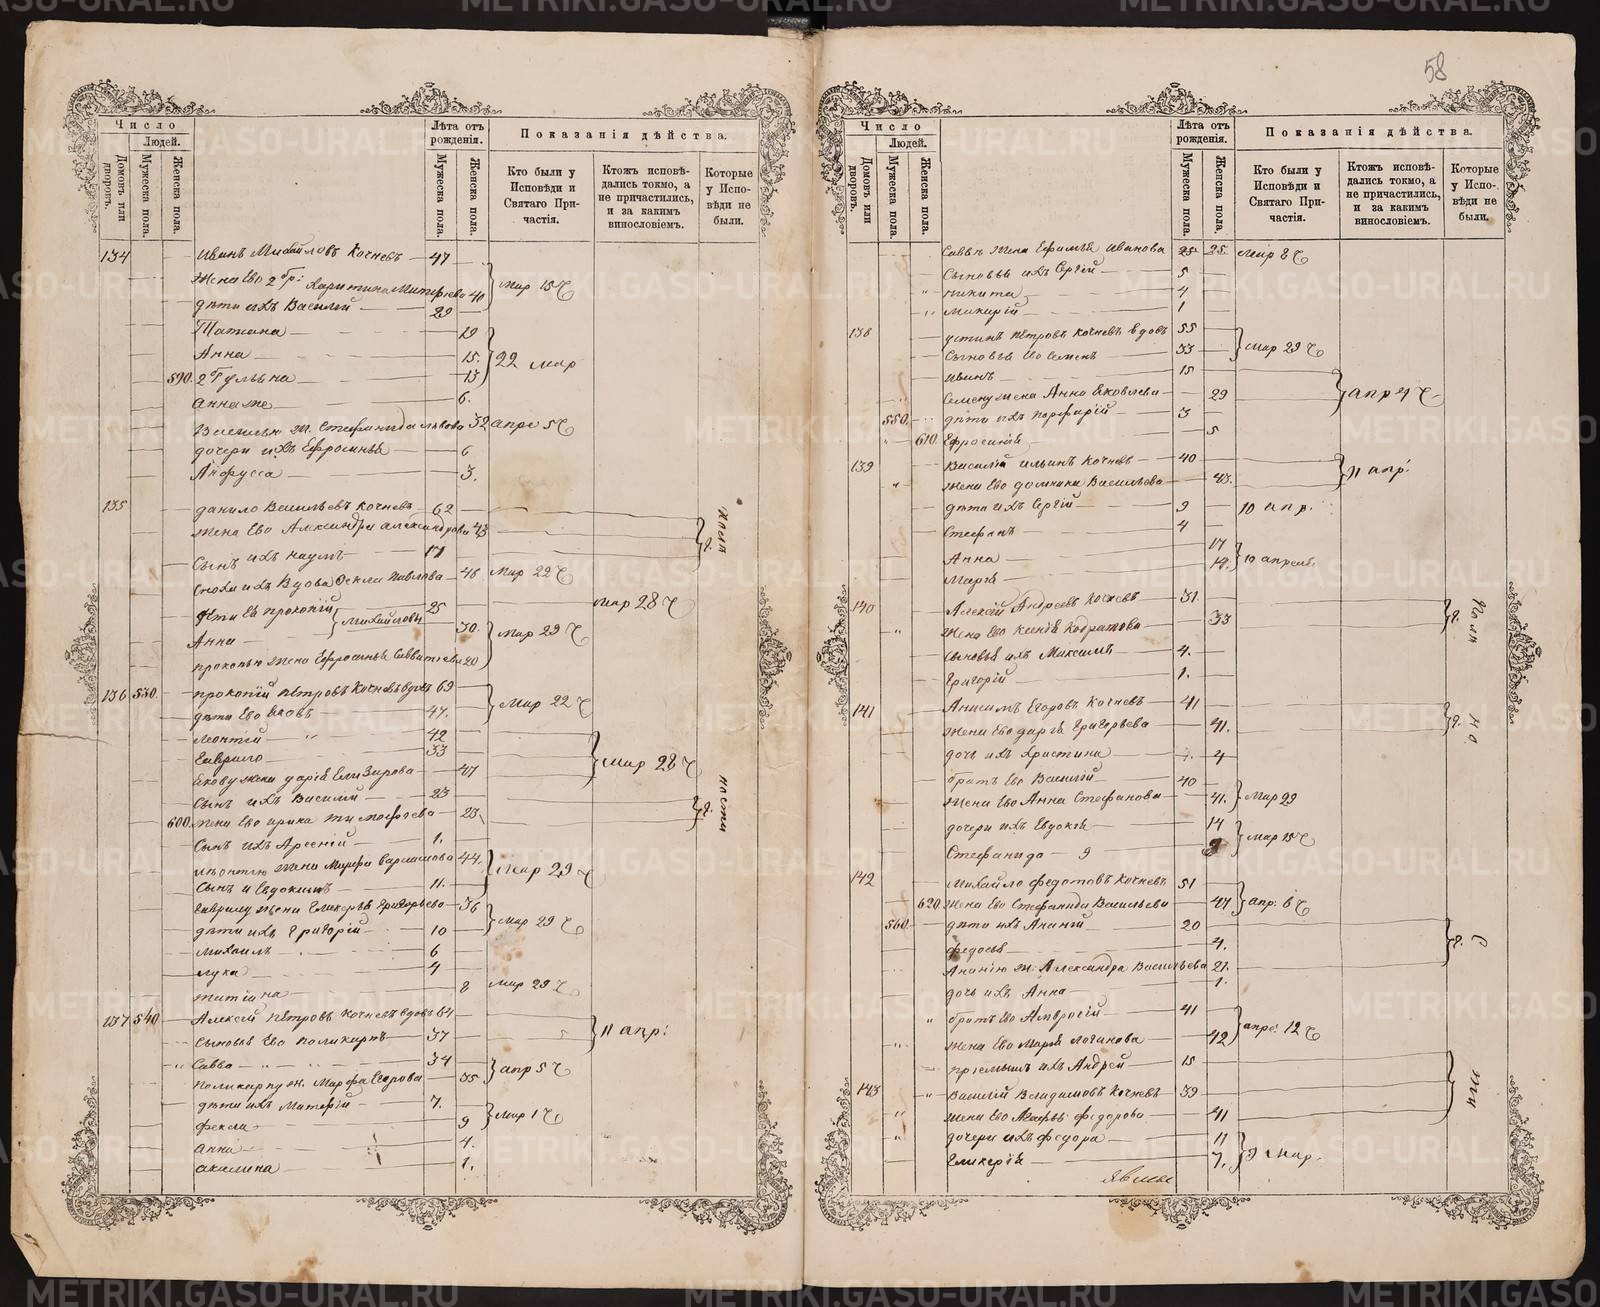 58
Число
Людей.
Домовъ или дворовъ.
Мужеска пола.
Женска пола.
Лѣта отъ рожденія.
Мужеска пола.
Женска пола.
Показанія дѣйства.
Кто были у Исповѣди и Святаго Причастія.
Ктожъ исповѣдались токмо, а не причастились, и за какимъ винословіемъ.
Которые у Исповѣди не были.
134 Иванъ Михайловъ Кочневъ 47
Жена Ево 2 бр: Харитина 40 Мар 15
дѣти ихъ Василій 29
Татіана 19
Анна 15. 22 мар
590. 13
Анна же 6.
Василью ж. Стефанида Львова 32 апре 5
дочери ихъ Ефросинья 6
Анфусса 3.
135 данило Васильевъ Кочневъ 62
жена Ево Александра Александрова 43
Сынъ ихъ наумъ 17
Сноха ихъ Вдова Фекла Павлова 46 Мар 22
дѣти Ея прокопій 25 Михайловы мар 28
Анна 30. Мар 29
прокопью жена Ефросинья Савватиева 20
136 530. прокопій Петровъ Кочневъ вдовъ 69
дѣти Ево Яковъ 47. Мар 22
Леонтій 42
Гаврило 33
Якову жена дарія Елизарова 47 Мар 28
Сынъ ихъ Василій 23
600. жена Ево ирина тимофеева 23
Сынъ ихъ Арсеній 1.
Леонтью жена Марфа Варламова 44. Мар 29
Сынъ и Евдокимъ 11.
Гаврилу жена Гликерья Григорьева 36
дѣти ихъ Григорій 10 Мар 29
Михаилъ 6
лука 4
татіана 8 мар 29
137 540. Алексѣй Петровъ Кочневъ вдовъ 64
Сыновья Ево поликарпъ 37 11 апр:
Савва 34
поликарпу ж. Марфа Егорова 35 апр 5
дѣти ихъ 7.
фекла 9 Мар 1
анна 4.
акилина 1.
Число
Людей.
Домовъ или дворовъ.
Мужеска пола.
Женска пола.
Лѣта отъ рожденія.
Мужеска пола.
Женска пола.
Показанія дѣйства.
Кто были у Исповѣди и Святаго Причастія.
Ктожъ исповѣдались токмо, а не причастились, и за какимъ винословіемъ.
Которые у Исповѣди не были.
Саввы жена Ефимья Иванова 25 25. мар 8
Сыновья ихъ Сргій 5
Никита 4
Макарій 1
138 устинъ Петровъ Кочневъ вдовъ 55
Сыновья Ево Семенъ 33 Мар 29
иванъ 15
Семену жена Анна Яковлева 29 апр 4
550. дѣти ихъ порфирій 3
610. Ефросинія 5
139 Василій ильинъ Кочневъ 40
жена Ево домника Васильева 43. 11 апр:
дѣти ихъ Сргій 9 10 апр.
Стефанъ 4
Анна 17 10 апреля
Марія
140 Алексѣй Андреевъ Кочневъ 31.
жена Ево 33
Сыновья ихъ Максимъ 4.
Григорій 1.
141 Анисимъ Егоровъ Кочневъ 41
жена Ево дарія Григорьева 41.
дочь ихъ Христина 4
братъ Ево Василій 40
жена Ево Анна Стефанова 41. Мар 29
дочери ихъ Евдокія 14 мар 15
Стефанида 9 9
142 Михайло федотовъ Кочневъ 51
620. жена Ево Стефанида Васильева 47 апр: 6
560. дѣти ихъ Ананій 20
федосья 4.
Ананію ж. Александра Васильева 21.
дочь ихъ Анна 1.
братъ Ево Амвросій 41
жена Ево Марія логинова 42 апре: 12
пріемышъ ихъ Андрей 15
143 Василій Владимовъ Кочневъ 39
жена Ево федорова 41
дочери ихъ федора 11
Гликерія 7. 9 мар.
METRIKI.GASO-URAL.RU